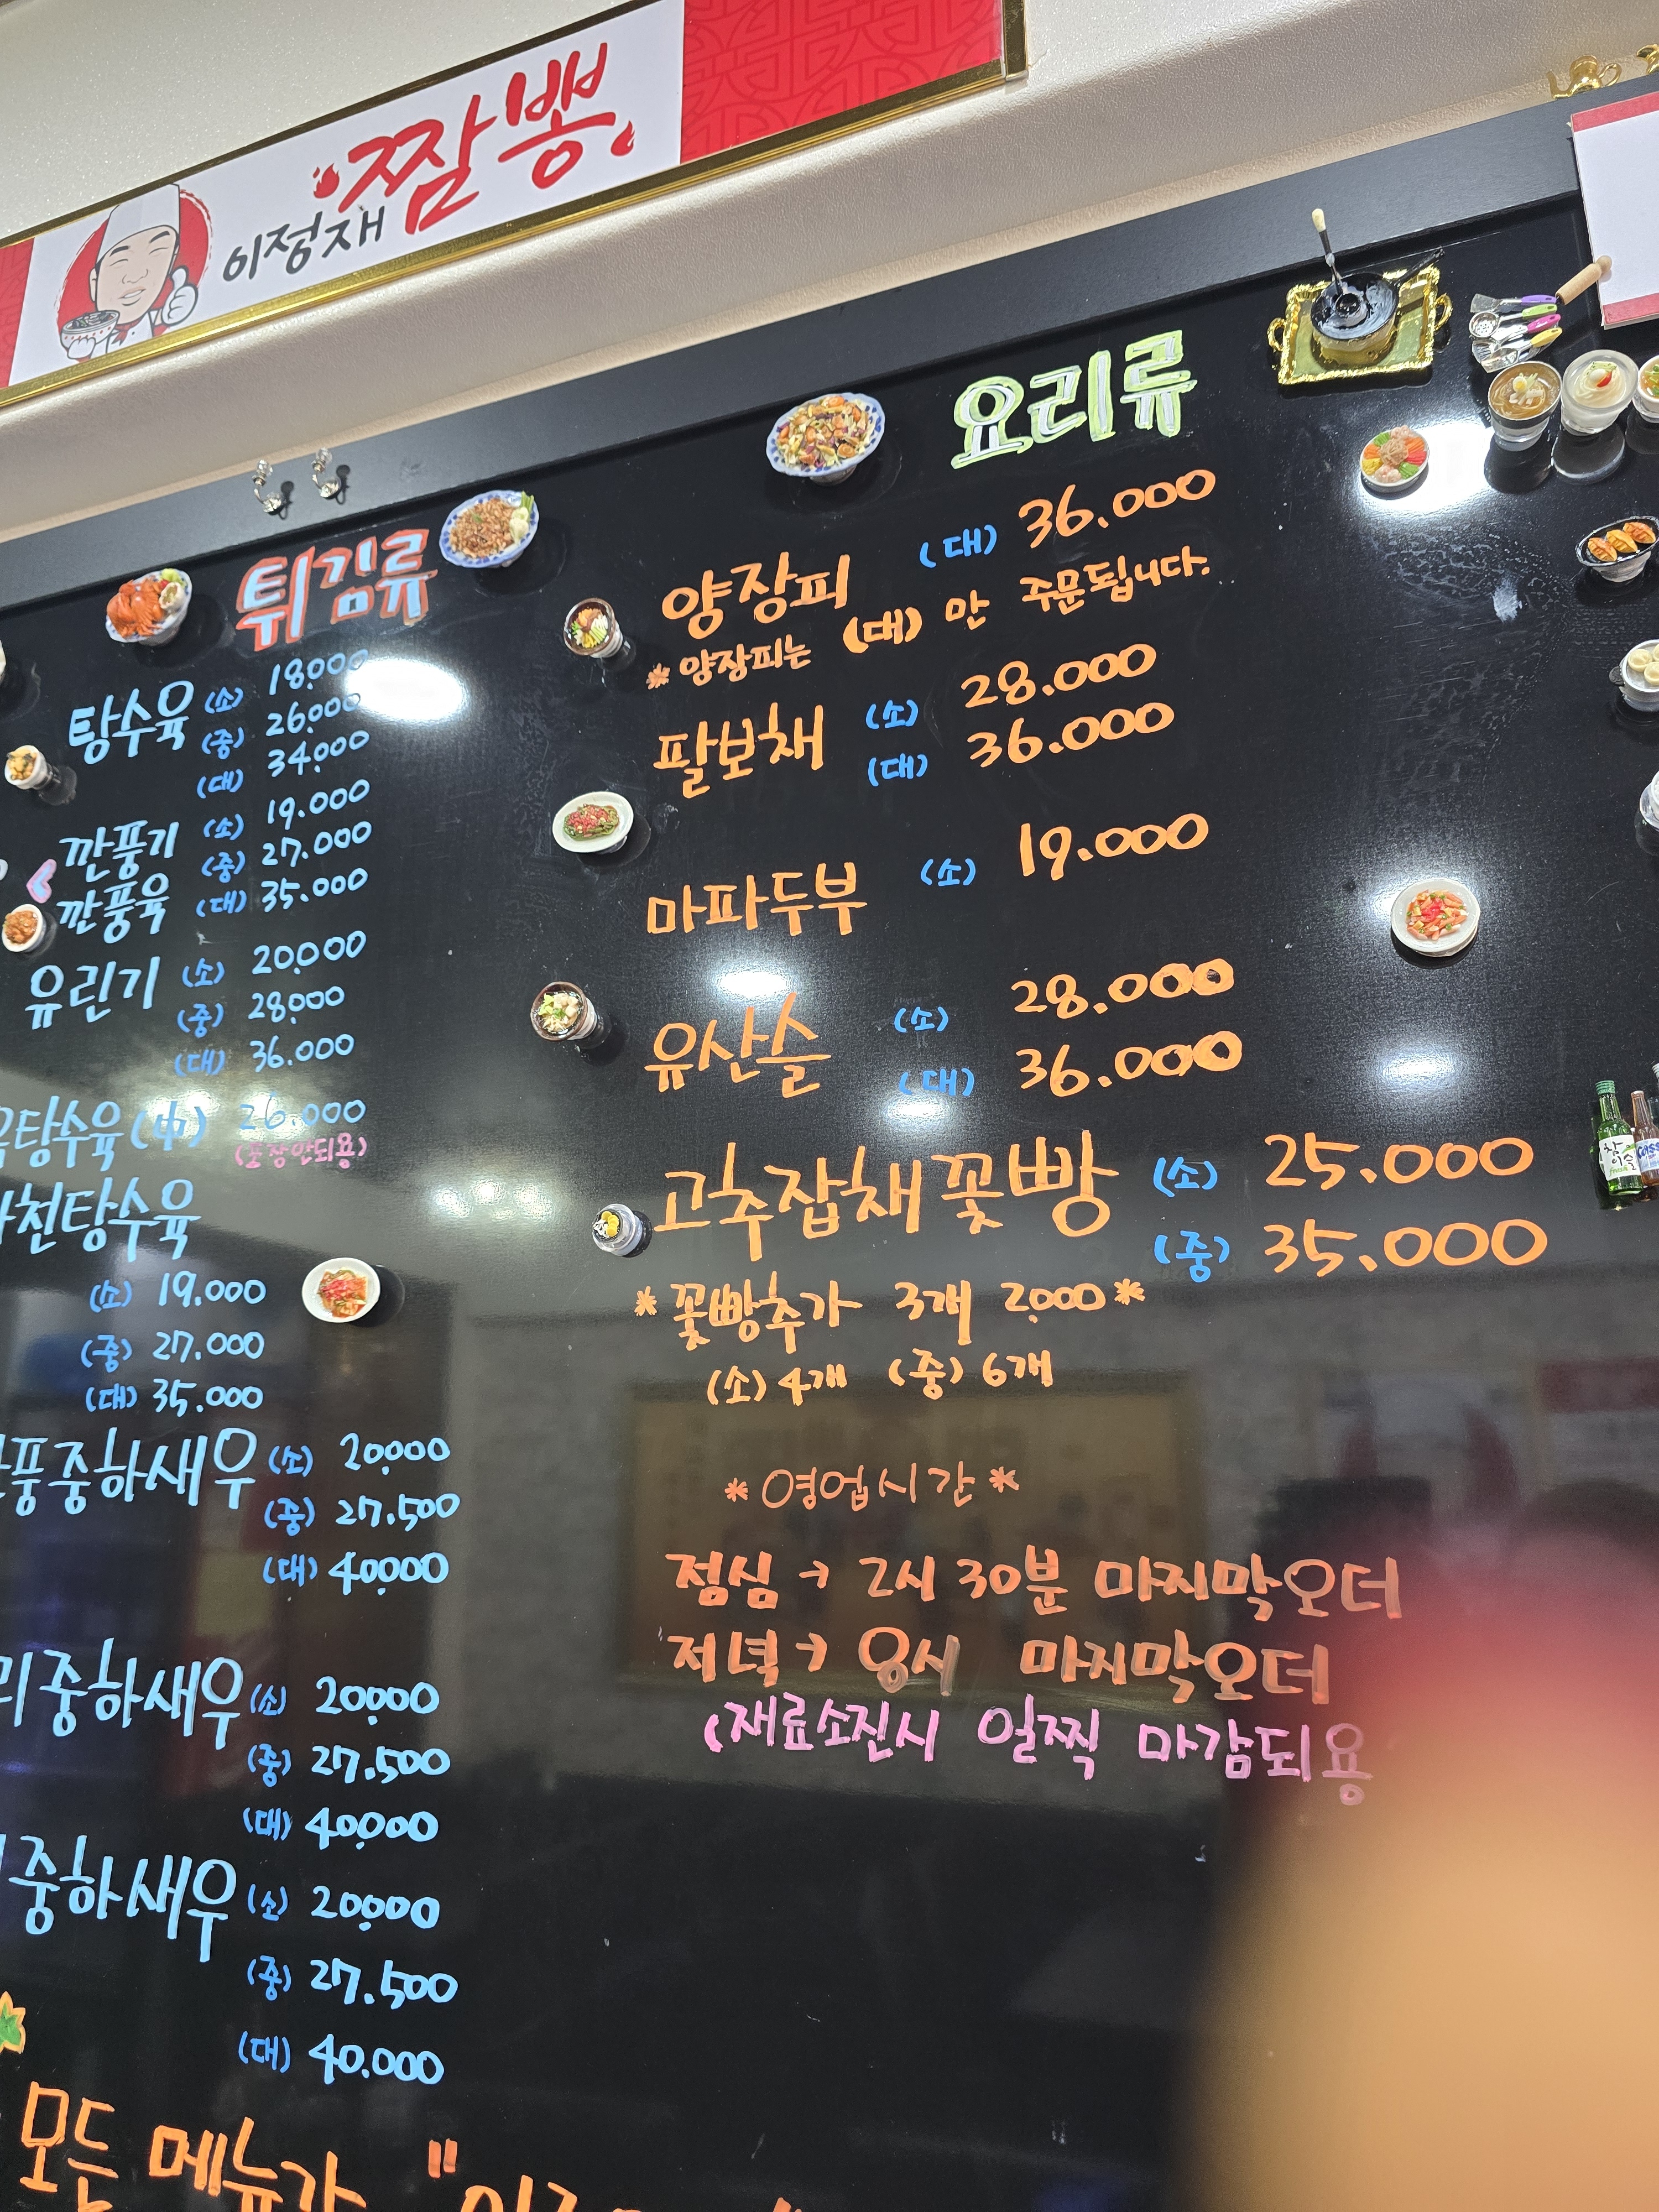 이정재 짬뽕
튀김류
탕수육 (소) 18.000
(중) 26.000
(대) 34.000
깐풍기 (소) 19.000
깐풍육 (중) 27.000
(대) 35.000
유린기 (소) 20.000
(중) 28.000
(대) 36.000
탕수육 (中) 26.000
(포장안되용)
천탕수육
(소) 19.000
(중) 27.000
(대) 35.000
풍중하새우 (소) 20.000
(중) 27.500
(대) 40.000
리중하새우 (소) 20.000
(중) 27.500
(대) 40.000
중하새우 (소) 20.000
(중) 27.500
(대) 40.000
모든 메뉴가 "
요리류
양장피 (대) 36.000
* 양장피는 (대) 만 주문됩니다.
팔보채 (소) 28.000
(대) 36.000
마파두부 (소) 19.000
유산슬 (소) 28.000
(대) 36.000
고추잡채꽃빵 (소) 25.000
(중) 35.000
* 꽃빵추가 3개 2.000 *
(소) 4개 (중) 6개
* 영업시간 *
점심 → 2시 30분 마지막오더
저녁 → 8시 마지막오더
(재료소진시 일찍 마감되용
참이슬